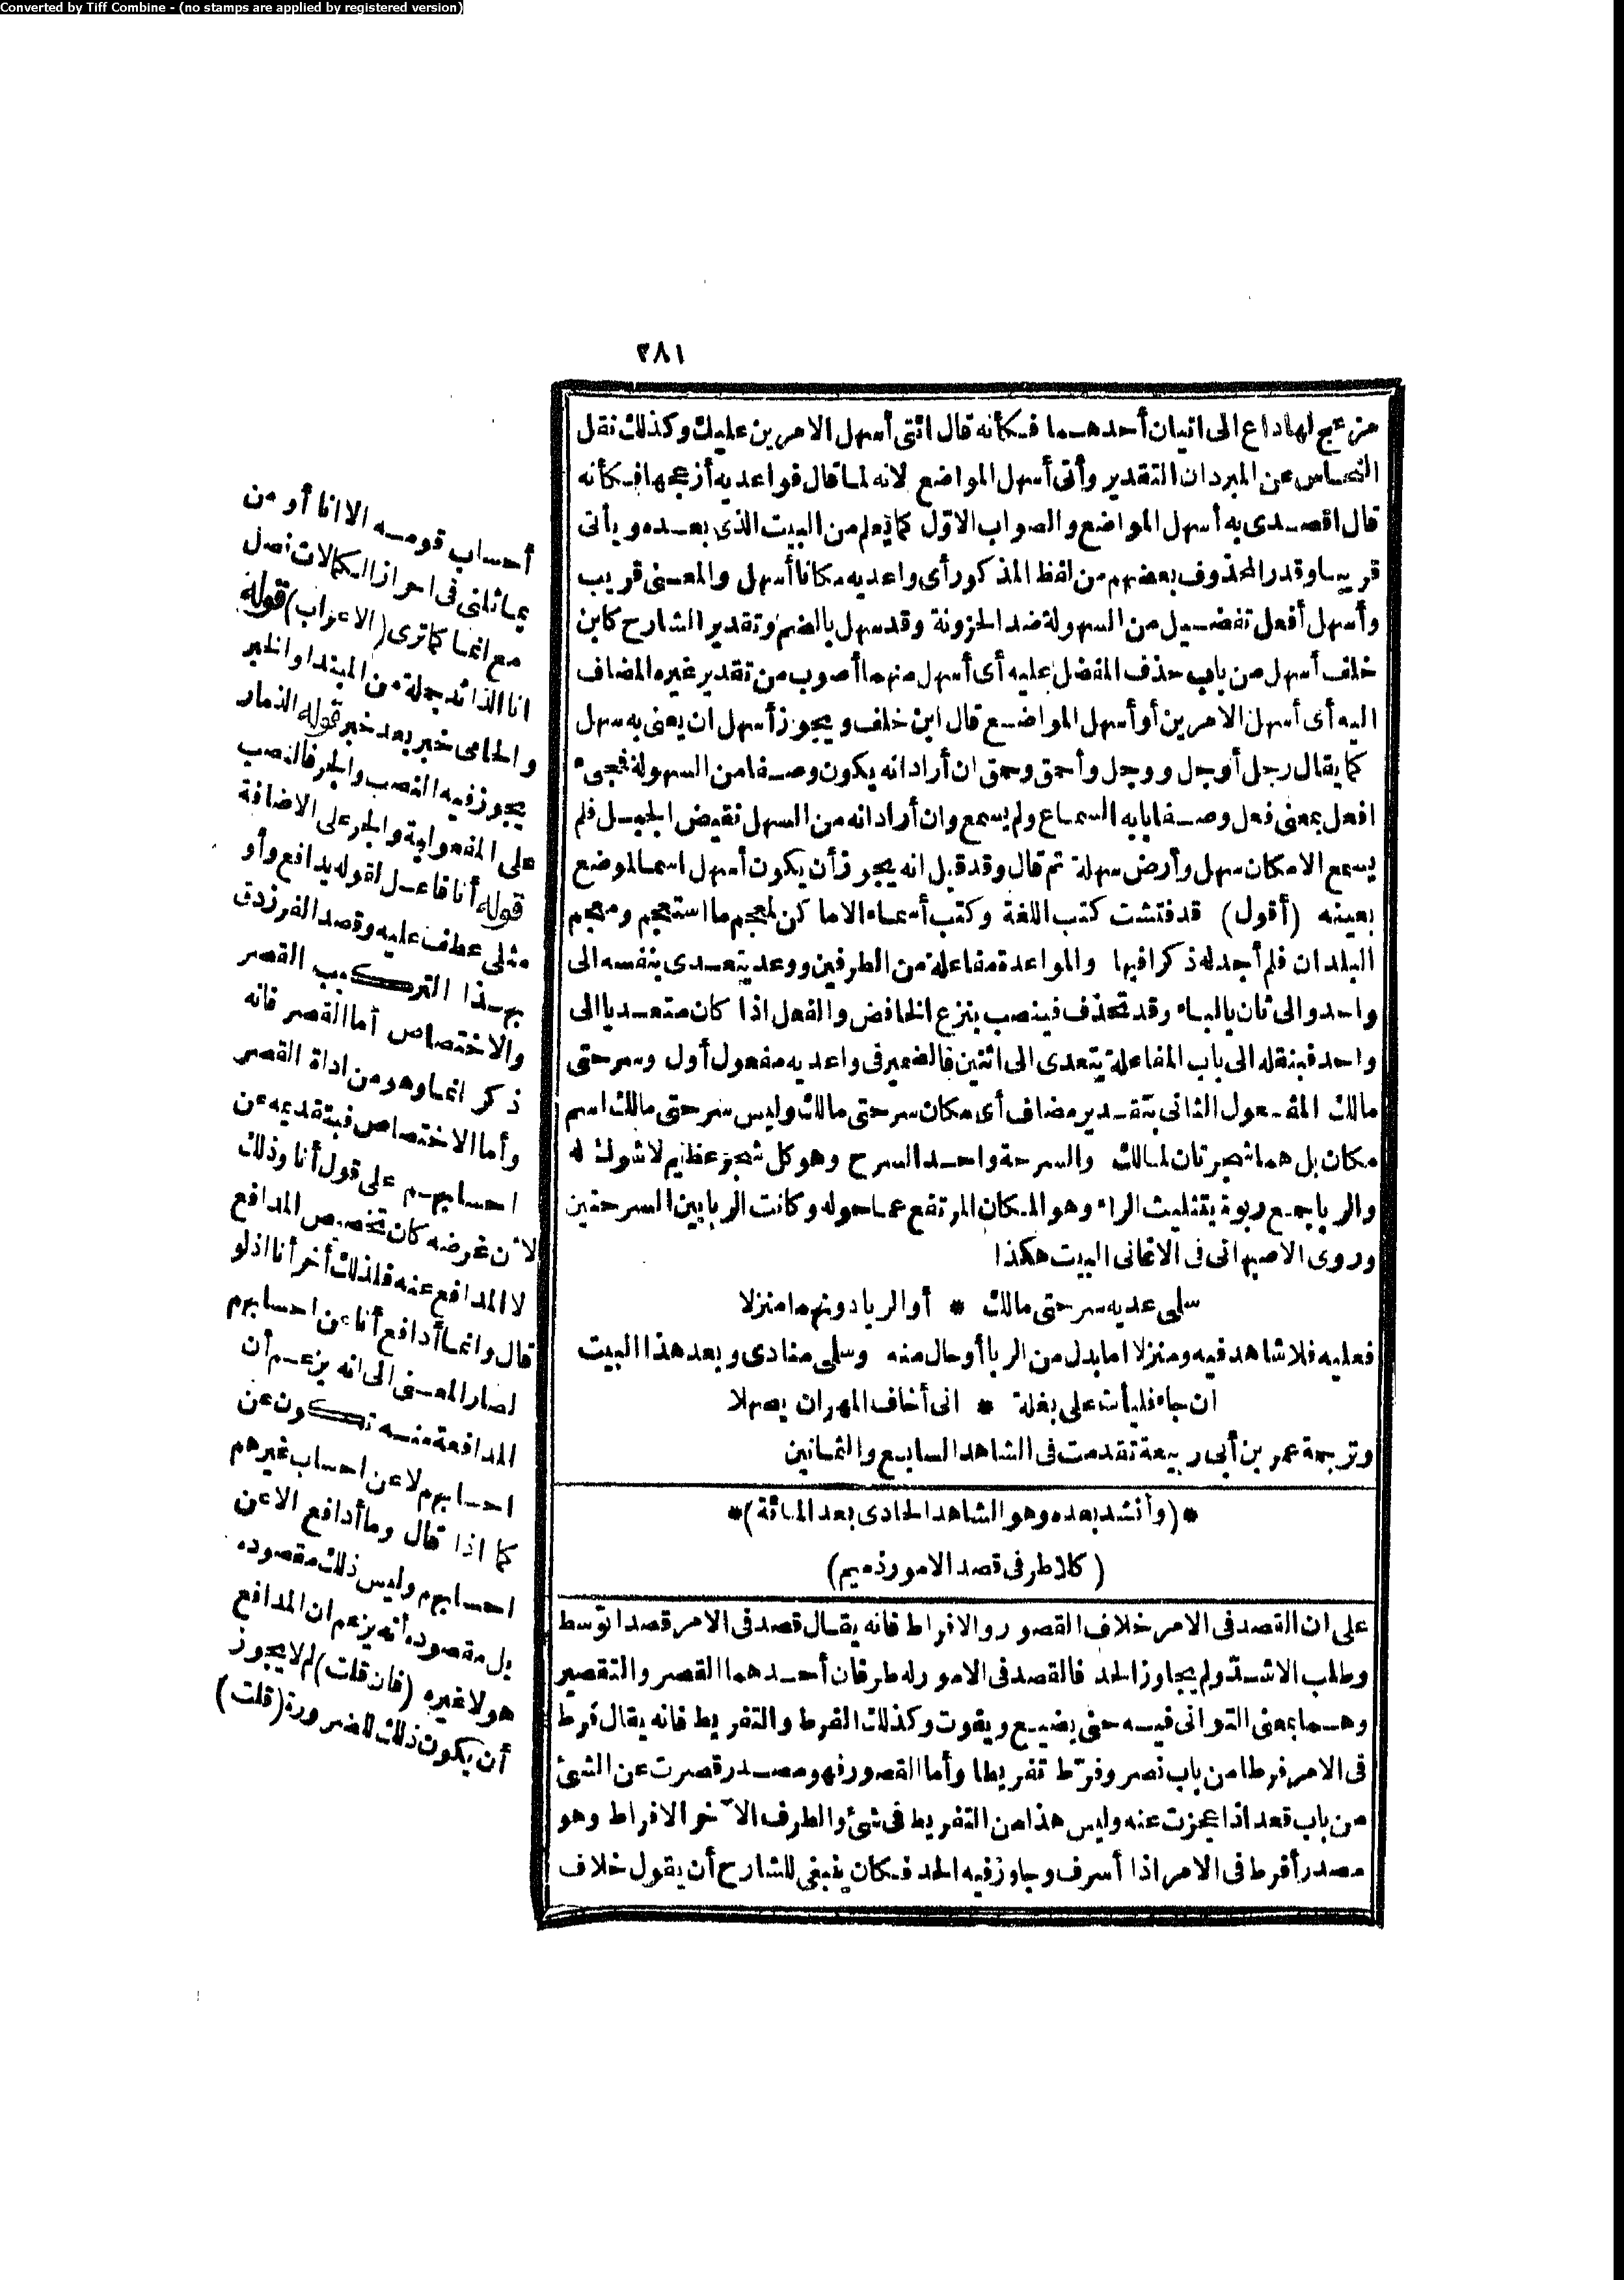 Converted by Tiff Combine - (no stamps are applied by registered version)
٢٨١
مزعج لها داع الى اتيان أحدهما فكأنه قال ائتى أسهل الامرين عليك وكذلك نقل
النحاس عن المبرد ان التقدير وأتى أسهل المواضع لانه لما قال فواعديه أزعجها فكأنه
قال اقصدى به أسهل المواضع والصواب الاوّل كما يعلم من البيت الذى بعده ويأتى
قريبا وقدر المحذوف بعضهم من لفظ المذكور أى واعديه مكانا أسهل والمعنى قريب
وأسهل أفعل تفضيل من السهولة ضد الحزونة وقد سهل بالضم وتقدير الشارح كابن
خلف أسهل من باب حذف المفضل عليه أى أسهل منهما أصوب من تقدير غيره المضاف
اليه أى أسهل الامرين أو أسهل المواضع قال ابن خلف ويجوز أسهل ان يعنى به سهل
كما يقال رجل أوجل ووجل وأحمق وحمق ان أراد انه يكون وصفا من السهولة فمجىء
افعل بمعنى فعل وصفا بابه السماع ولم يسمع وان أراد انه من السهل نقيض الجبل فلم
يسمع الا مكان سهل وأرض سهلة ثم قال وقد قيل انه يجوز أن يكون أسهل اسما لموضع
بعينه (أقول) قد فتشت كتب اللغة وكتب أسماء الاماكن كمعجم ما استعجم ومعجم
البلدان فلم أجد له ذكرا فيها والمواعدة مفاعلة من الطرفين ووعد يتعدى بنفسه الى
واحد والى ثان بالباء وقد تحذف فينصب بنزع الخافض والفعل اذا كان متعديا الى
واحد فبنقله الى باب المفاعلة يتعدى الى اثنين فالضمير فى واعديه مفعول أول وسرحتى
مالك المفعول الثانى بتقدير مضاف أى مكان سرحتى مالك وليس سرحتى مالك اسم
مكان بل هما شجرتان لمالك والسرحة واحد السرح وهو كل شجر عظيم لا شوك له
والربا جمع ربوة بتثليث الراء وهو المكان المرتفع عما حوله وكانت الربا بين السرحتين
وروى الاصبهانى فى الاغانى البيت هكذا
سلمى عديه سرحتى مالك * أو الربا دونهما منزلا
فعليه فلا شاهد فيه ومنزلا اما بدل من الربا أو حال منه وسلمى منادى وبعد هذا البيت
ان جاء فليأت على بغلة * انى أخاف المهر ان يصهلا
وترجمة عمر بن أبى ربيعة تقدمت فى الشاهد السابع والثمانين
*(وأنشد بعده وهو الشاهد الحادى بعد المائة)*
(كلا طرفى قصد الامور ذميم)
على ان القصد فى الامر خلاف القصور والافراط فانه يقال قصد فى الامر قصدا توسط
وطلب الاشدّ ولم يجاوز الحد فالقصد فى الامور له طرفان أحدهما القصر والتقصير
وهما بمعنى التوانى فيه حتى يضيع ويفوت وكذلك الفرط والتفريط فانه يقال فرط
فى الامر فرطا من باب نصر وفرّط تفريطا وأما القصور فهو مصدر قصرت عن الشئ
من باب قعد اذا عجزت عنه وليس هذا من التفريط فى شئ والطرف الآخر الافراط وهو
مصدر أفرط فى الامر اذا أسرف وجاوز فيه الحد فكان ينبغى للشارح أن يقول خلاف
أحساب قومه الا انا أو من
يماثلنى فى احراز الكمالات نصل
مع انما كما ترى (الاعراب) قوله
انا الذائد جملة من المبتدا والخبر
والحامى خبر بعد خبر قوله الذمار
يجوز فيه النصب والجر فالنصب
على المفعولية والجر على الاضافة
قوله أنا فاعل لقوله يدافع وأو
مثلى عطف عليه وقصد الفرزدق
بهذا التركيب القصر
والاختصاص أما القصر فانه
ذكر انما وهو من اداة القصر
وأما الاختصاص فبتقديمه عن
احسابهم على قول أنا وذلك
لان غرضه كان تخصيص المدافع
لا المدافع عنه فلذلك أخر أنا اذ لو
قال وانما أدافع أنا عن احسابهم
لصار المعنى الى انه يزعم أن
المدافعة منه تكون عن
احسابهم لا عن احساب غيرهم
كما اذا قال وما أدافع الا عن
احسابهم وليس ذلك مقصوده
بل مقصوده أنه يزعم ان المدافع
هو لا غيره (فان قلت) لم لا يجوز
أن يكون ذلك للضرورة (قلت)